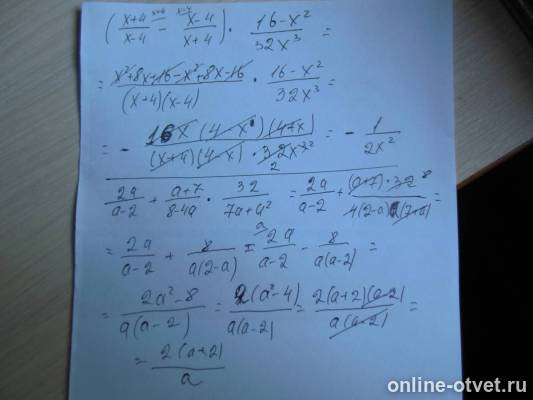 ( x+4/x-4 - x-4/x+4 ) · 16-x²/32x³ =
= x²+8x+16-x²+8x-16/(x+4)(x-4) · 16-x²/32x³ =
= - 16x(4-x)(4+x)/(x+4)(4-x)·32x³ 2 = - 1/2x²
2a/a-2 + a+7/8-4a · 32/7a+a² = 2a/a-2 + (a+7)·32 8/4(2-a)a(7+a) =
= 2a/a-2 + 8/a(2-a) = a 2a/a-2 - 8/a(a-2) =
= 2a²-8/a(a-2) = 2(a²-4)/a(a-2) = 2(a+2)(a-2)/a(a-2) =
= 2(a+2)/a
online-otvet.ru